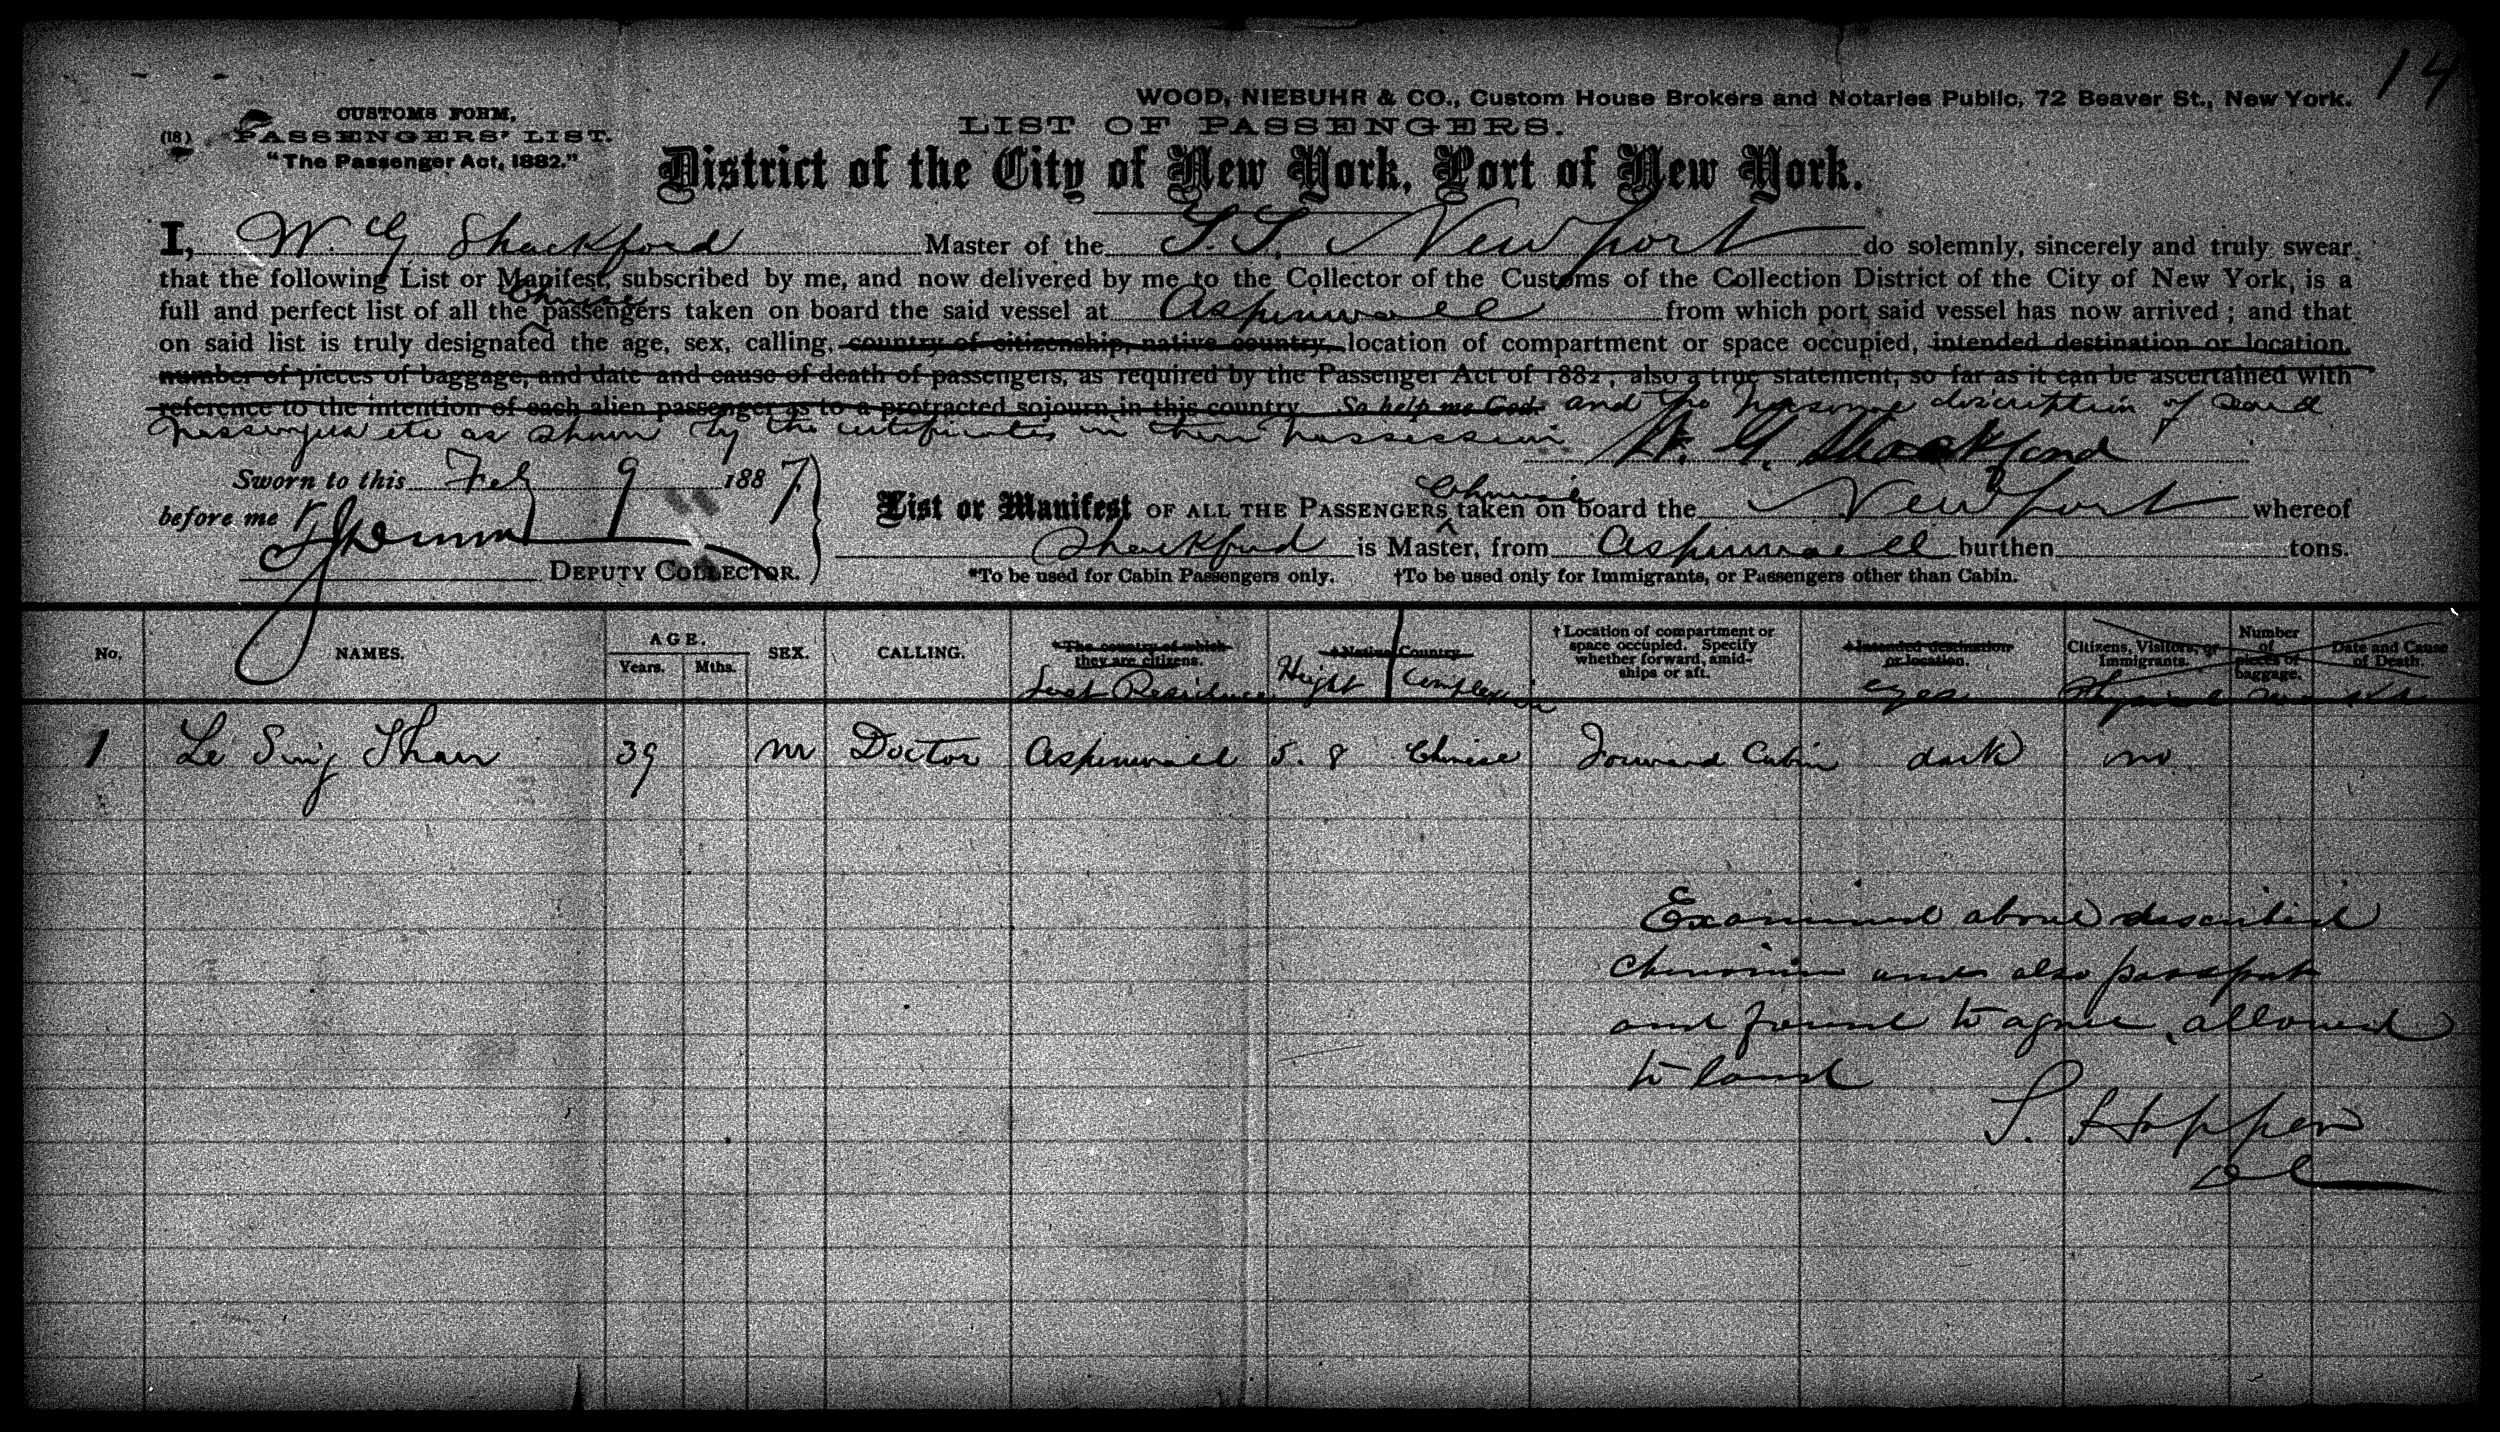 14
WOOD, NIEBUHR & CO., Custom House Brokers and Notaries Public, 72 Beaver St., New York.
CUSTOMS FORM,
(18) PASSENGERS' LIST.
"The Passenger Act, 1882."
LIST OF PASSENGERS.
District of the City of New York, Port of New York.
I, W. G Shackford Master of the S.S. Newport do solemnly, sincerely and truly swear
that the following List or Manifest, subscribed by me, and now delivered by me to the Collector of the Customs of the Collection District of the City of New York, is a
full and perfect list of all the Chinese passengers taken on board the said vessel at Aspinwall from which port said vessel has now arrived; and that
on said list is truly designated the age, sex, calling, country of citizenship, native country, location of compartment or space occupied, intended destination or location,
number of pieces of baggage, and date and cause of death of passengers, as required by the Passenger Act of 1882, also a true statement, so far as it can be ascertained with
reference to the intention of each alien passenger as to a protracted sojourn in this country. So help me God. and the personal description of said
passengers etc as shown by the certificates in their possession W. G. Shackford
Sworn to this Feb 9 1887
before me
DEPUTY COLLECTOR.
List or Manifest OF ALL THE PASSENGERS Chinese taken on board the Newport whereof
Shackford is Master, from Aspinwall burthen tons.
*To be used for Cabin Passengers only. †To be used only for Immigrants, or Passengers other than Cabin.
No. NAMES. AGE. Years. Mths. SEX. CALLING. *The country of which they are citizens. Last Residence †Native Country Height Complexion †Location of compartment or space occupied. Specify whether forward, amidships or aft. †Intended destination or location. eyes Citizens, Visitors, or Immigrants. Number of pieces of baggage. Date and Cause of Death. Physical marks
1 Le Sing Shan 39 m Doctor Aspinwall 5. 8 Chinese Forward Cabin dark no
Examined above described
Chinaman and also passport
and found to agree, allowed
to land
S. Hoppen